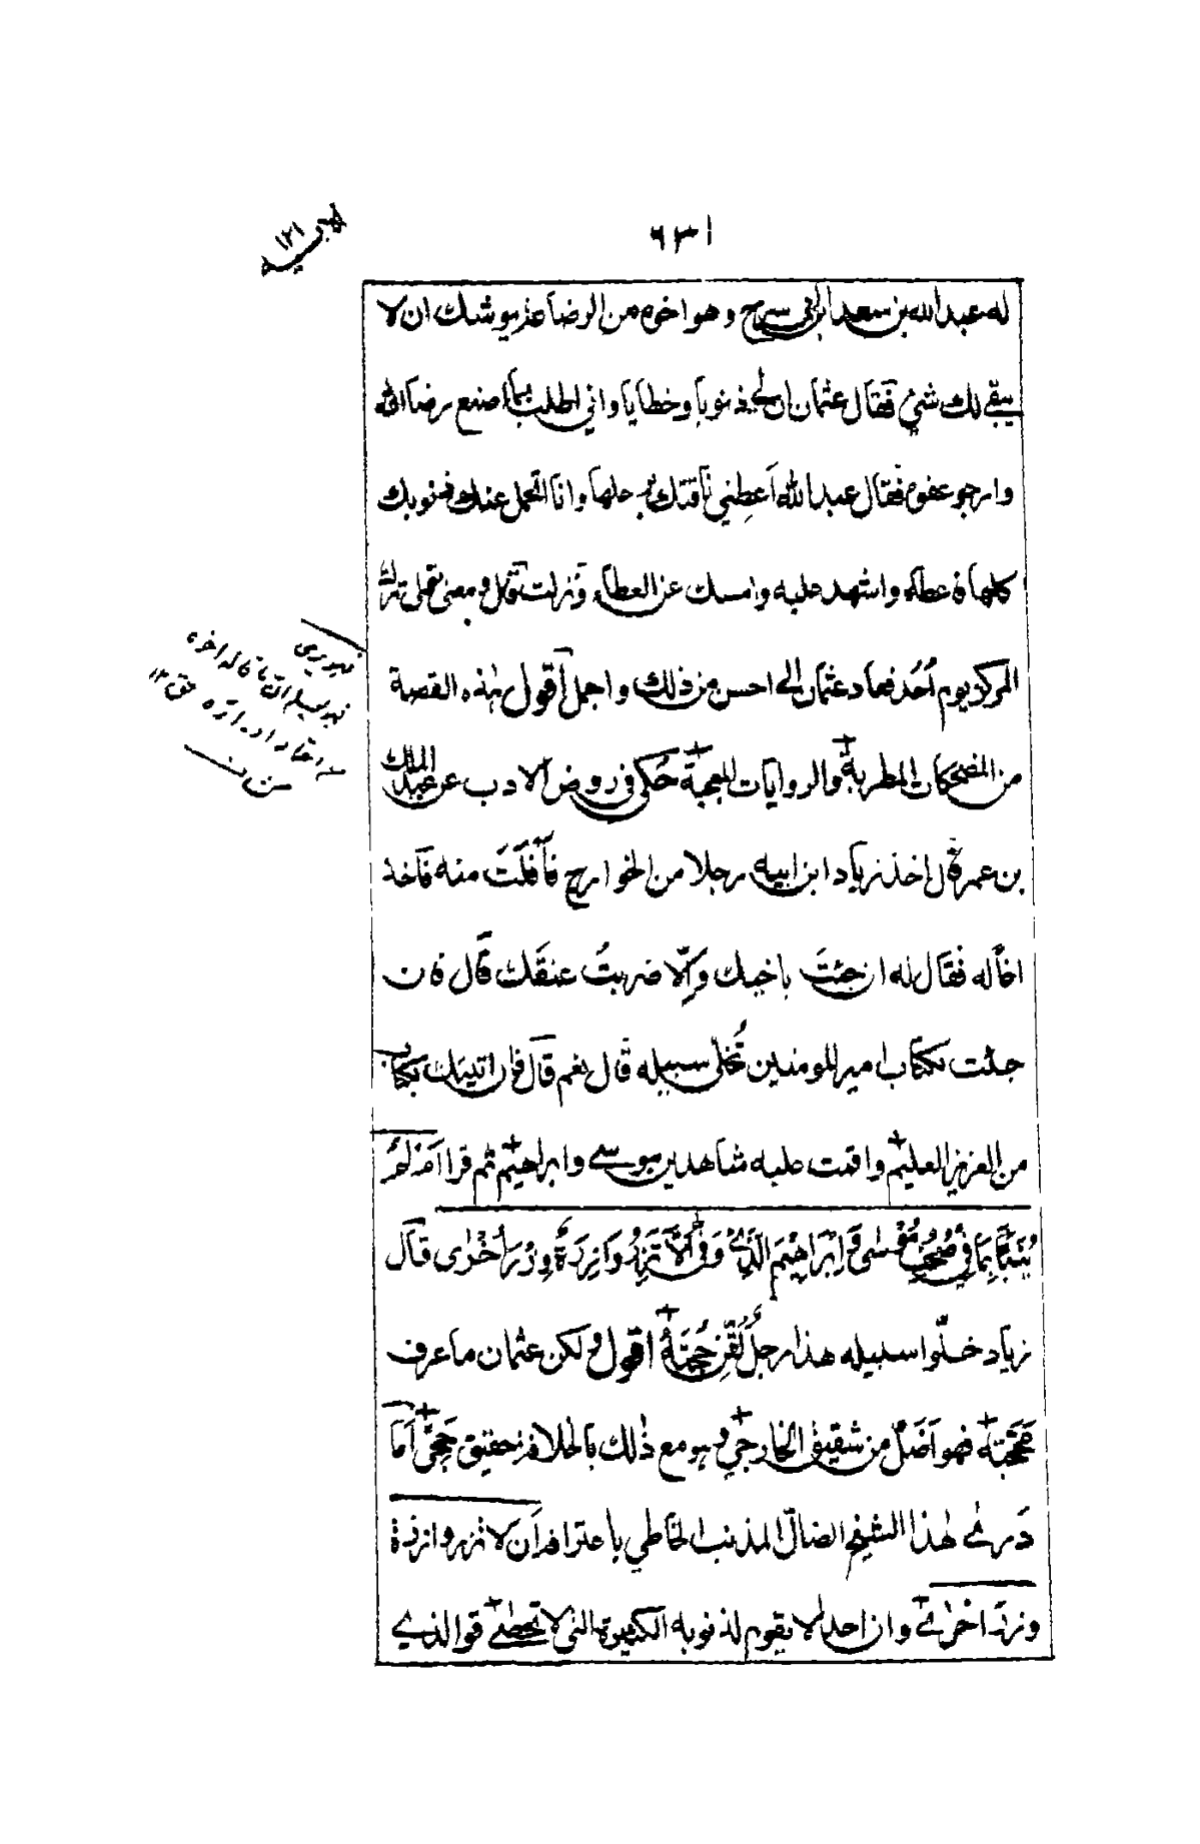 ٦٣١
له عبد الله بن سعد ابن ابي سرح وهو اخوه من الرضاعة يوشك ان لا
يبقے لك شئ فقال عثمان ان لے ذنوبا وخطايا واني اطلب بما اصنع رضا الله
وارجو عفوه فقال عبد الله اعطني ناقتك برحلها وانا اتحمل عنك ذنوبك
كلها فاعطاه واشهد عليه وامسك عن العطاء ونزلت تولى ومعنى تولى ترك
المركز يوم أُحد فعاد عثمان الى احسن من ذلك واجمل أقول هذه القصة
من المضحكات المطربة والروايات المعجبة حُكي في روض الادب عن عبد الملك
بن عمر قال اخذ زياد ابن ابيه رجلا من الخوارج فأفلَتَ منه فاخذ
اخا له فقال له ان جئتَ باخيك وإلّا ضربتُ عنقك قال فان
جئت بكتاب امير المومنين تُخلى سبيله قال نعم قال فان اتيتك بكتاب
من العزيز العليم واقمت عليه شاهدين موسے وابراهيم ثم قرا اَم لم
يُنَبَّأ بِمَا فِي صُحُفِ مُوْسٰى وَ اِبْرَاهِيْمَ الَّذِيْ وَفّٰى اَلَّا تَزِرُ وَازِرَةٌ وِزْرَ أُخْرٰى قال
زياد خلّوا سبيله هذا رجلٌ لُقِّنَ حُجَّتَهُ اقول ولكن عثمان ما عرف
حجته فهو اَضلّ من شقيق الخارجي وهو مع ذلك بالخلافة حقيق اَمَا
دَرىٰ هذا الشيخ الضالّ المذنب الخاطي باعترافه اَن لا تزر وازرة
وزر اخرىٰ وان احدا لا يقوم لذنوبه الكثيرة التي لا تحصٰے فوالذي